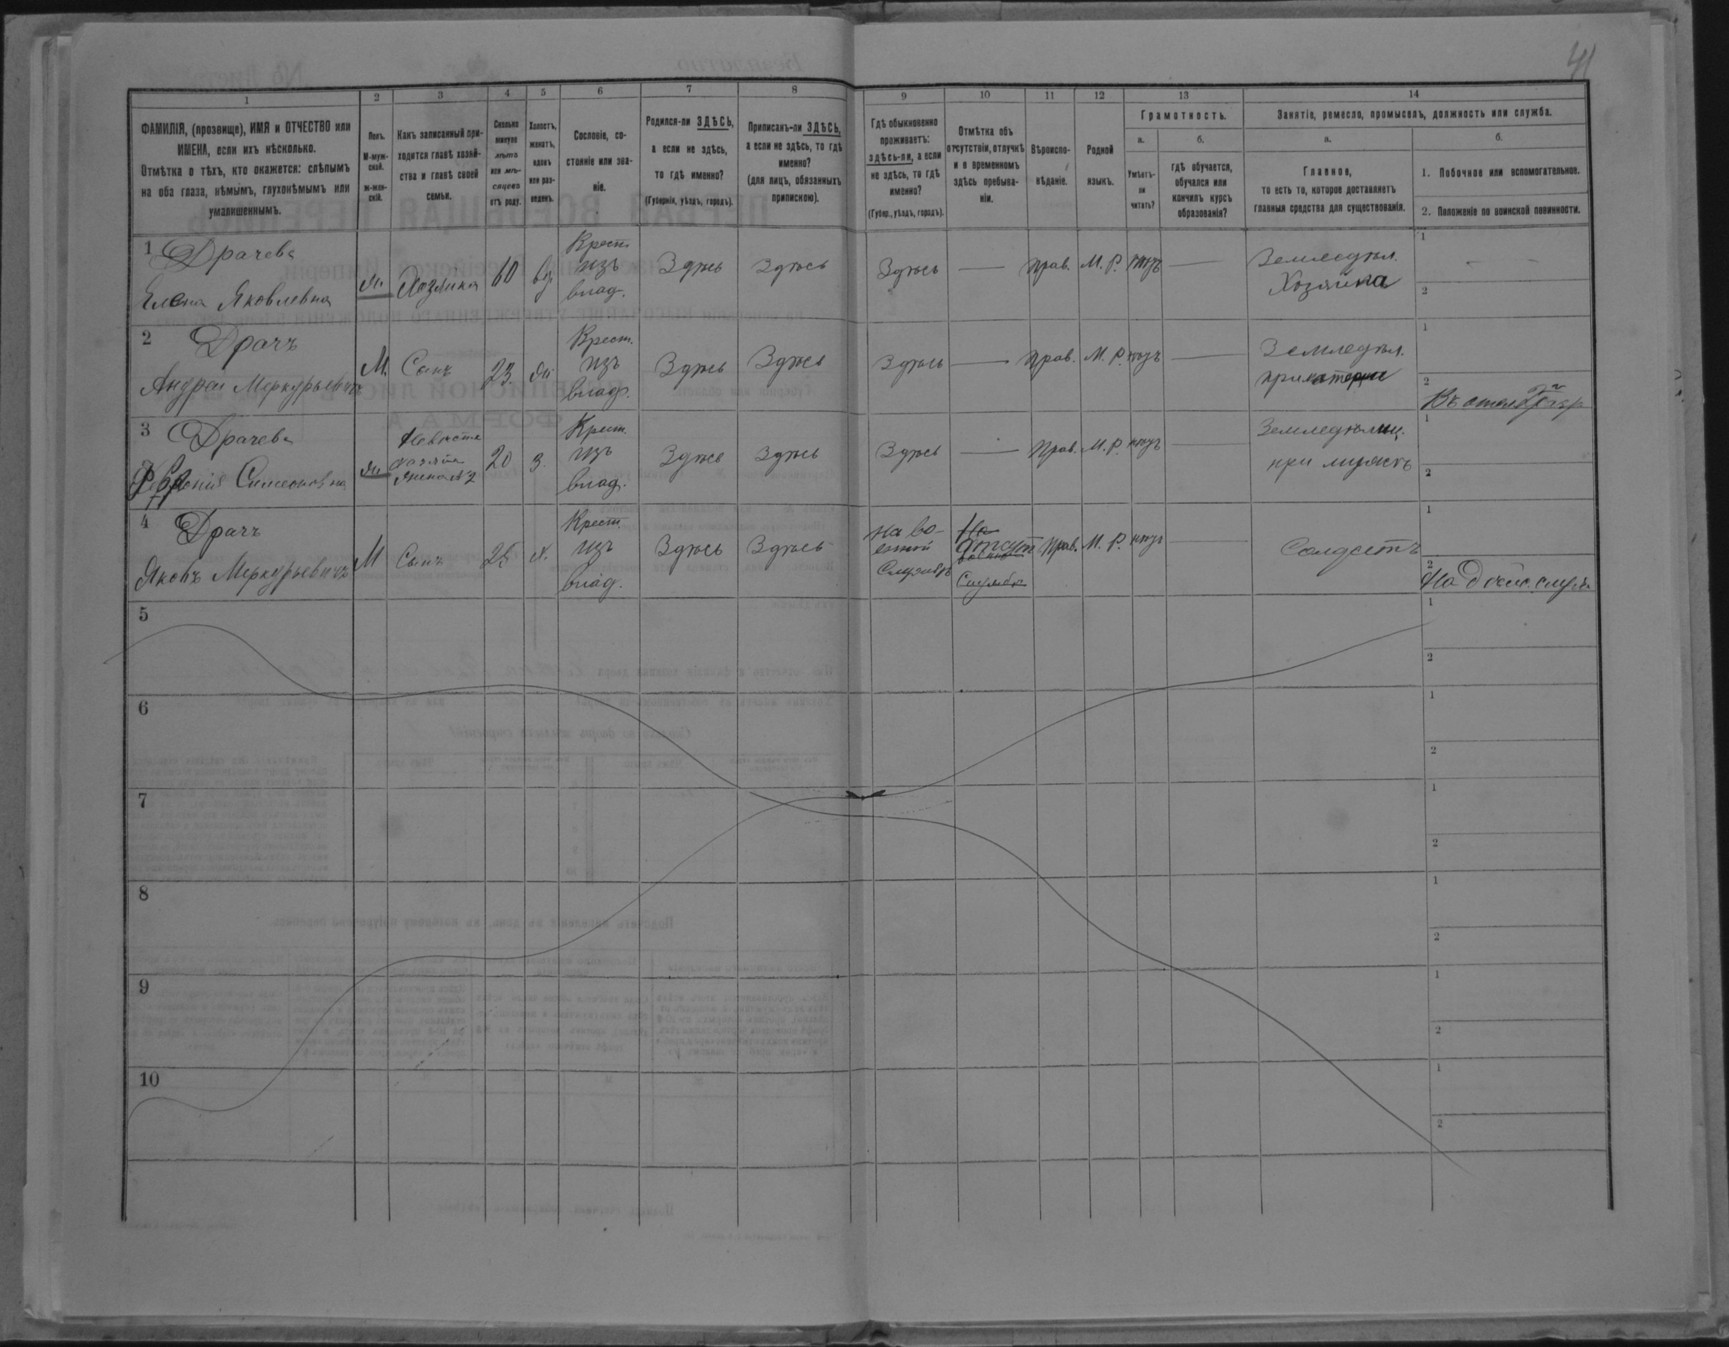 41
1 2 3 4 5 6 7 8 9 10 11 12 13 14
ФАМИЛІЯ, (прозвище), ИМЯ и ОТЧЕСТВО или
ИМЕНА, если ихъ нѣсколько.
Отмѣтка о тѣхъ, кто окажется: слѣпымъ
на оба глаза, нѣмымъ, глухонѣмымъ или
умалишеннымъ.
Полъ.
М-муж-
ской.
ж-жен-
скій.
Какъ записанный при-
ходится главѣ хозяй-
ства и главѣ своей
семьи.
Сколько
минуло
лѣтъ
или мѣ-
сяцевъ
отъ роду.
Холостъ,
женатъ,
вдовъ
или раз-
веденъ.
Сословіе, со-
стояніе или зва-
ніе.
Родился-ли ЗДѢСЬ,
а если не здѣсь,
то гдѣ именно?
(Губернія, уѣздъ, городъ).
Приписанъ-ли ЗДѢСЬ,
а если не здѣсь, то гдѣ
именно?
(для лицъ, обязанныхъ
припискою).
Гдѣ обыкновенно
проживаетъ:
здѣсь-ли, а если
не здѣсь, то гдѣ
именно?
(Губер., уѣздъ, городъ).
Отмѣтка объ
отсутствіи, отлучкѣ
и о временномъ
здѣсь пребыва-
ніи.
Вѣроиспо-
вѣданіе.
Родной
языкъ.
Грамотность.
а.
Умѣетъ-
ли
читать?
б.
гдѣ обучается,
обучался или
кончилъ курсъ
образованія?
Занятіе, ремесло, промыселъ, должность или служба.
а.
Главное,
то есть то, которое доставляетъ
главныя средства для существованія.
б.
1. Побочное или вспомогательное.
2. Положеніе по воинской повинности.
1 Драчева
Елена Яковлевна
жи
Хозяйка
60
вд.
Крест.
изъ
влад.
Здѣсь
Здѣсь
Здѣсь
—
Прав.
М. Р.
нѣтъ
—
Земледѣл.
Хозяйка
1
2
2 Драчъ
Андрей Меркурьевичъ
М.
Сынъ
23
Крест.
изъ
влад.
Здѣсь
Здѣсь
Здѣсь
—
Прав.
М. Р.
нѣтъ
—
Земледѣл.
при матери
1
2
3 Драчева
Симеоновна
Невѣстка
20
з.
Крест.
изъ
влад.
Здѣсь
Здѣсь
Здѣсь
—
Прав.
М. Р.
нѣтъ
—
при мужѣ
1
2
4 Драчъ
Яковъ Меркурьевичъ
М
Сынъ
Крест.
изъ
влад.
Здѣсь
Здѣсь
на во-
енной
Службѣ
Прав.
М. Р.
нѣтъ
—
Солдатъ
1
2
На дѣйс. служ.
5
1
2
6
1
2
7
1
2
8
1
2
9
1
2
10
1
2